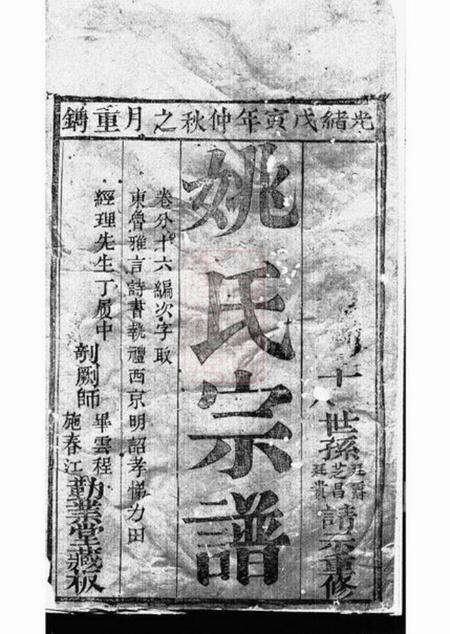 光緒戊寅年仲秋之月重鐫
十八世孫廷爵芝昌廷貴請示重修
姚氏宗譜
卷分十六編次字取
東魯雅言詩書執禮西京明詔孝悌力田
經理先生丁履中
剞劂師畢雲程施春江
勤業堂藏板